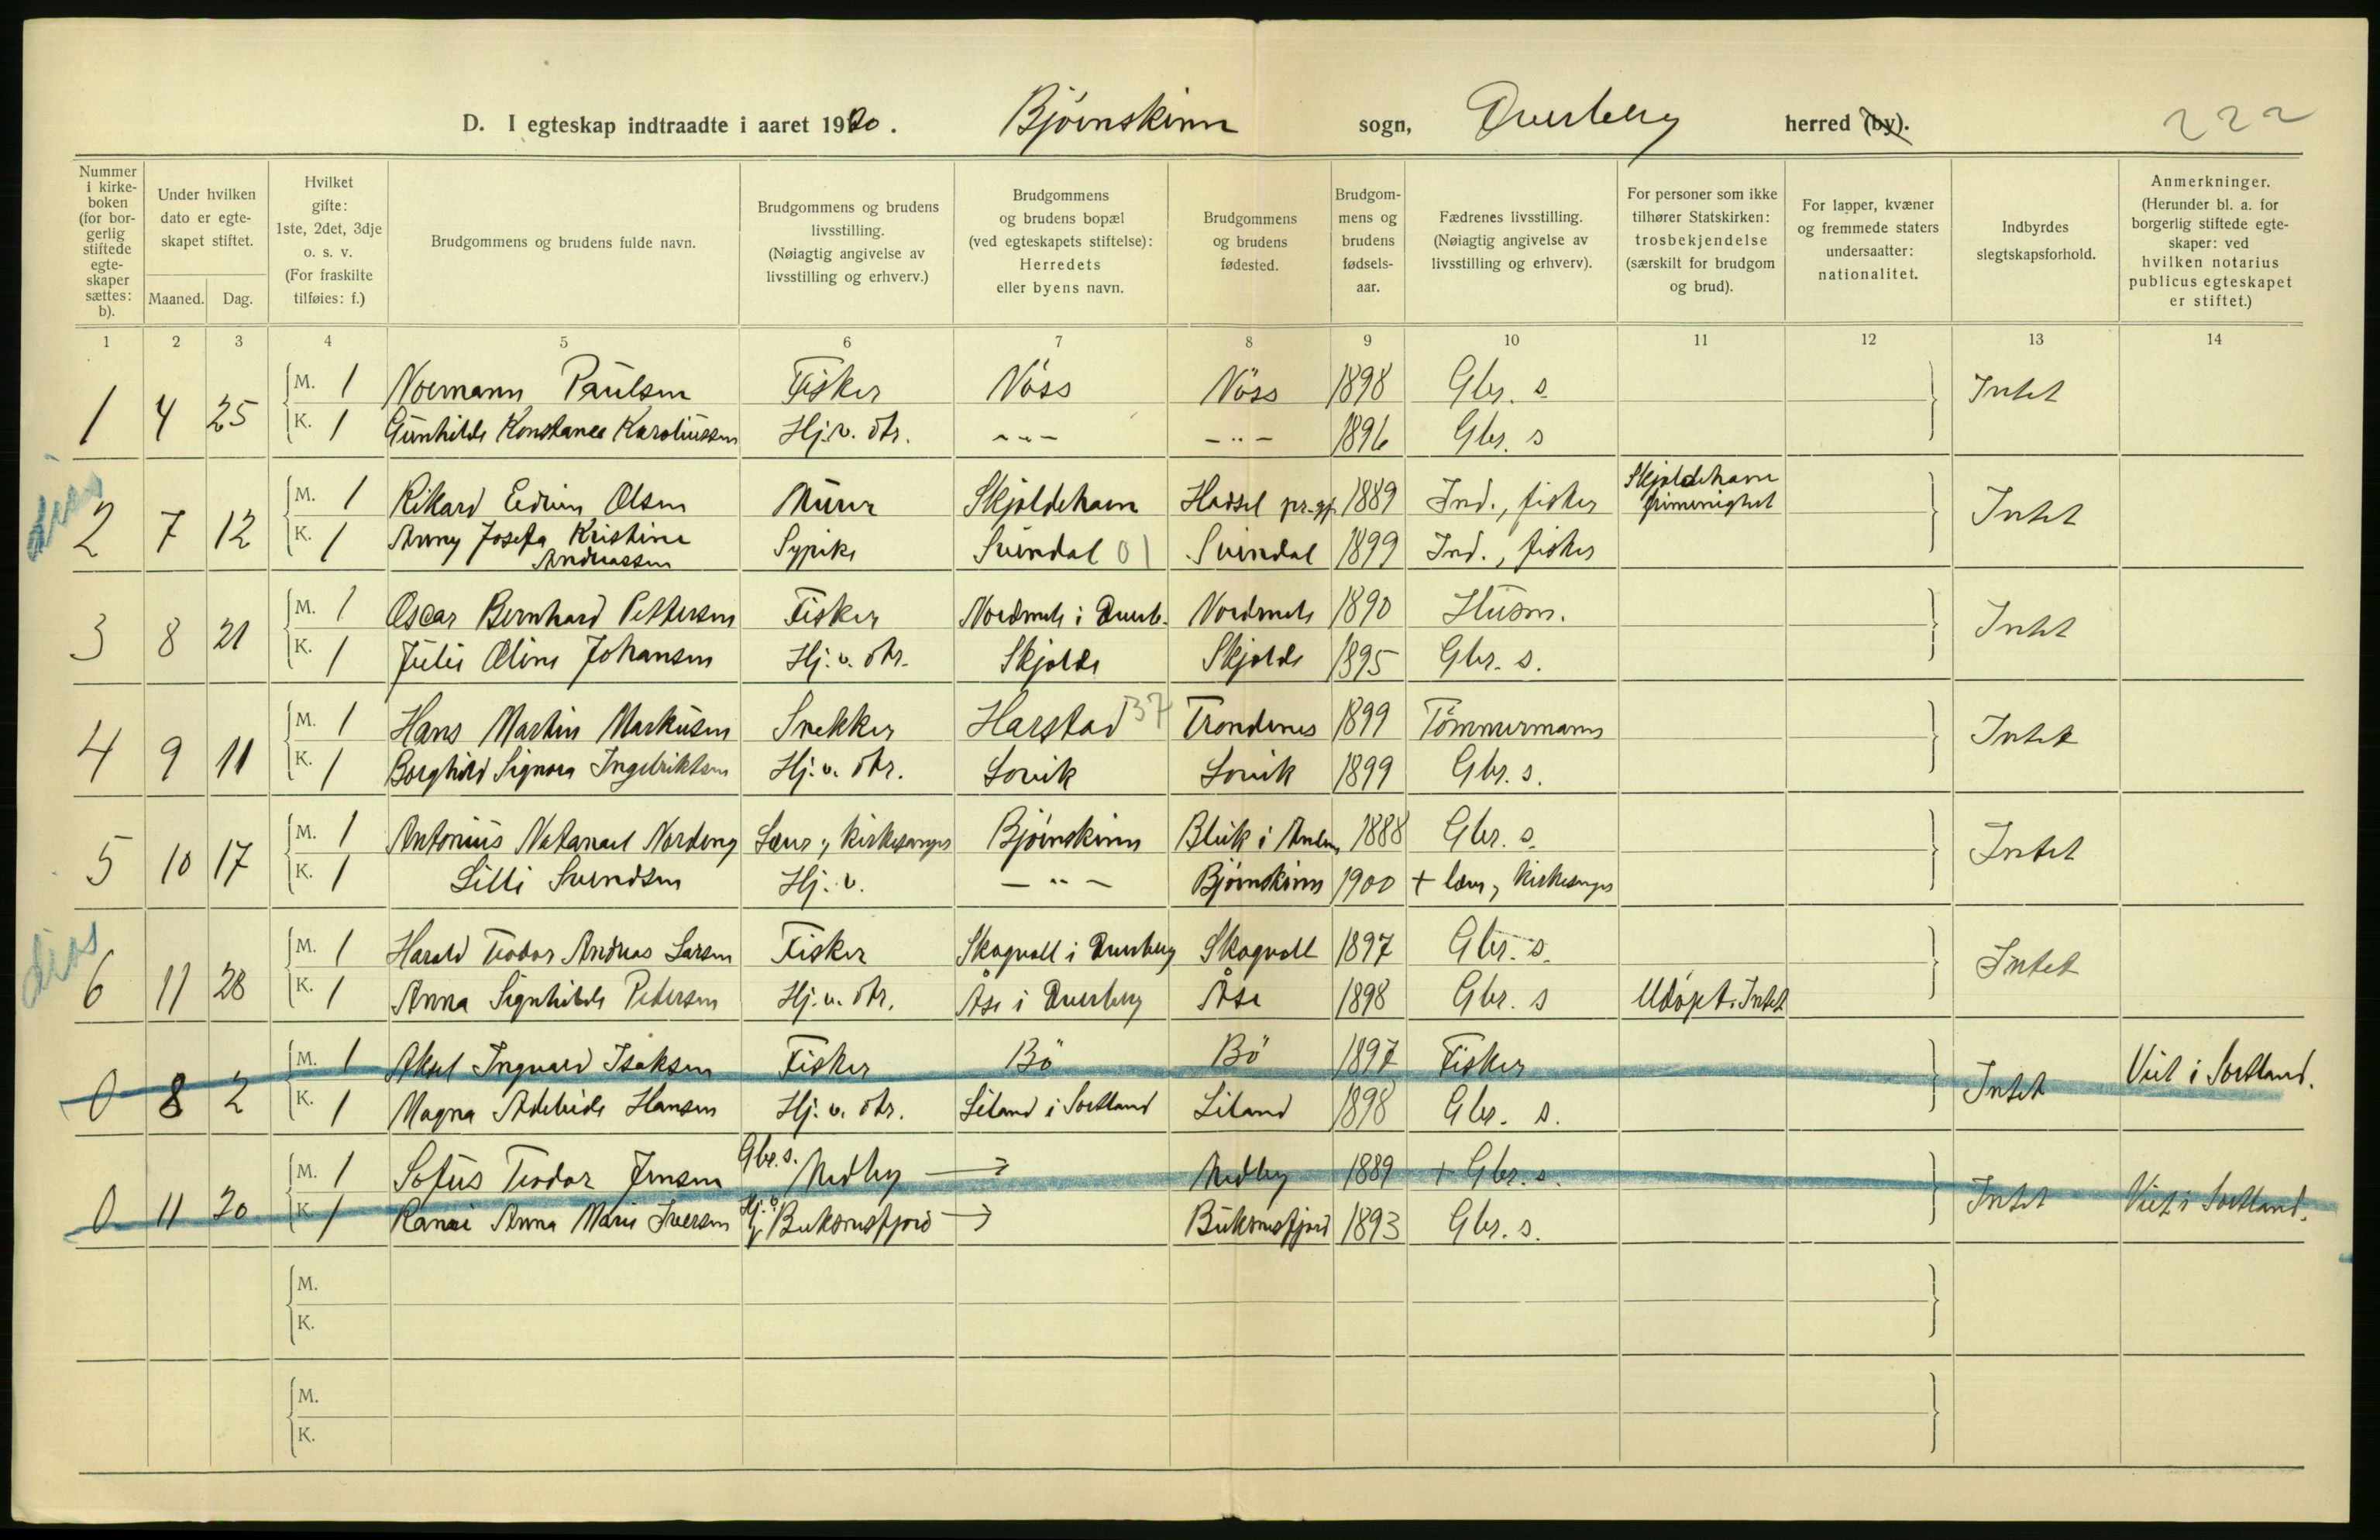 D. I egteskap indtraadte i aaret 1920. Björnskinn sogn, Dverberg herred (by). 222
Nummer i kirke-boken (for bor-gerlig stiftede egte-skaper sættes: b).
Under hvilken dato er egte-skapet stiftet.
Maaned. Dag.
Hvilket gifte: 1ste, 2det, 3dje o. s. v. (For fraskilte tilføies: f.)
Brudgommens og brudens fulde navn.
Brudgommens og brudens livsstilling. (Nøiagtig angivelse av livsstilling og erhverv.)
Brudgommens og brudens bopæl (ved egteskapets stiftelse): Herredets eller byens navn.
Brudgommens og brudens fødested.
Brudgom-mens og brudens fødsels-aar.
Fædrenes livsstilling. (Nøiagtig angivelse av livsstilling og erhverv).
For personer som ikke tilhører Statskirken: trosbekjendelse (særskilt for brudgom og brud).
For lapper, kvæner og fremmede staters undersaatter: nationalitet.
Indbyrdes slegtskapsforhold.
Anmerkninger. (Herunder bl. a. for borgerlig stiftede egte-skaper: ved hvilken notarius publicus egteskapet er stiftet.)
1 2 3 4 5 6 7 8 9 10 11 12 13 14
1 4 25 M. 1 Normann Paulsen Fisker Nöss Nöss 1898 Gbr. s. Intet
K. 1 Gunhilde Konstance Karoliussen Hj. v. dtr. - " - - " - 1896 Gbr. s
2 7 12 M. 1 Rikard Edvin Olsen Murer Skjoldehavn Hadsel pr.gj. 1889 Ind., fisker Skjoldehavn frimenighet Intet
K. 1 Anny Josefa Kristine Andreassen Sypike Svendal 01 Svendal 1899 Ind., fisker
3 8 21 M. 1 Oscar Bernhard Pettersen Fisker Nordmela i Dverb. Nordmela 1890 Husm. Intet
K. 1 Julie Oline Johansen Hj. v. dtr. Skjolde Skjolde 1895 Gbr. s.
4 9 11 M. 1 Hans Martin Markusen Snekker Harstad 37 Trondenes 1899 Tömmermann Intet
K. 1 Borghild Signora Ingebriktsen Hj. v. dtr. Lovik Lovik 1899 Gbr. s.
5 10 17 M. 1 Antonius Natanael Nordeng Lærer, kirkesanger Björnskinn Bleik i 1888 Gbr. s. Intet
K. 1 Lilli Svendsen Hj. v. - " - Bjørnskinn 1900 + lærer, kirkesanger
6 11 28 M. 1 Harald Teodor Andreas Larsen Fisker Skogvoll i Dverberg Skogvoll 1897 Gbr. s. Intet
K. 1 Anna Signhilde Pedersen Hj. v. dtr. Åse i Dverberg Åse 1898 Gbr. s Udöpt. Intet
0 8 2 M. 1 Aksel Ingvard Isaksen Fisker Bö Bö 1897 Fisker Intet Viet i Sortland.
K. 1 Magna Adeleide Hansen Hj. v. dtr. Liland i Sortland Liland 1898 Gbr. s.
0 11 20 M. 1 Sofus Teodor Jensen Gbr. s. Medby → Medby 1889 + Gbr. s. Intet Viet i Sortland.
K. 1 Ranai Anna Marie Iversen Hj. v. Buksnesfjord → Buksnesfjord 1893 Gbr. s.
M.
K.
M.
K.